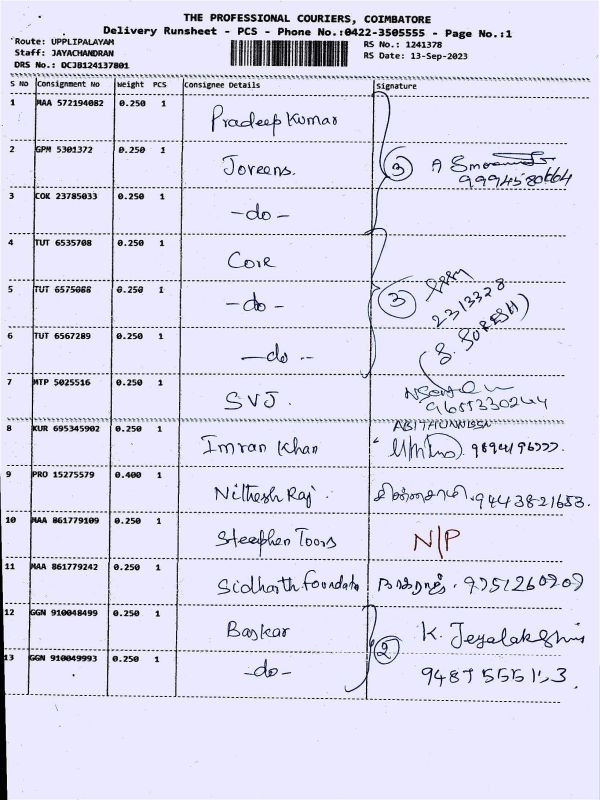 THE PROFESSIONAL COURIERS, COIMBATORE
Delivery Runsheet - PCS - Phone No.:0422-3505555 - Page No.:1
Route: UPPLIPALAYAM
Staff: JAYACHANDRAN
DRS No.: DCJB124137801
RS No.: 1241378
RS Date: 13-Sep-2023
S NO Consignment No Weight PCS Consignee Details Signature
1 MAA 572194082 0.250 1 Pradeep Kumar
2 GPM 5301372 0.250 1 Joreens. 3 A
9994580664
3 COK 23785033 0.250 1 -do-
4 TUT 6535708 0.250 1 Core
5 TUT 6575088 0.250 1 -do- 3
2313328
(S. SURESH)
6 TUT 6567289 0.250 1 -do-
7 MTP 5025516 0.250 1 SVJ.
9655330244
8 KUR 695345902 0.250 1 Imran Khan
9 PRO 15275579 0.400 1 Nithesh Raj 9443821653.
10 MAA 861779109 0.250 1 Steephen Toors N/P
11 MAA 861779242 0.250 1 Sidharth foundata
12 GGN 910048499 0.250 1 Baskar 2 K. Jeyalakshmi
13 GGN 910049993 0.250 1 -do-